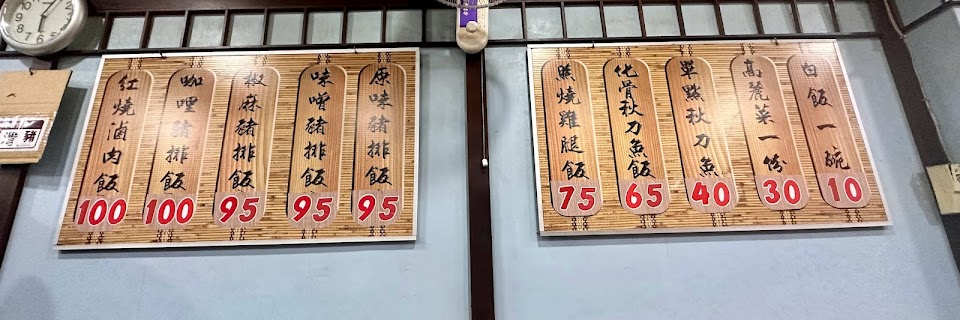 白飯一碗
10
高麗菜一份
30
單點秋刀魚
40
化骨秋刀魚飯
65
照燒雞腿飯
75
原味豬排飯
95
味噌豬排飯
95
椒麻豬排飯
95
咖哩豬排飯
100
紅燒滷肉飯
100
灣豬